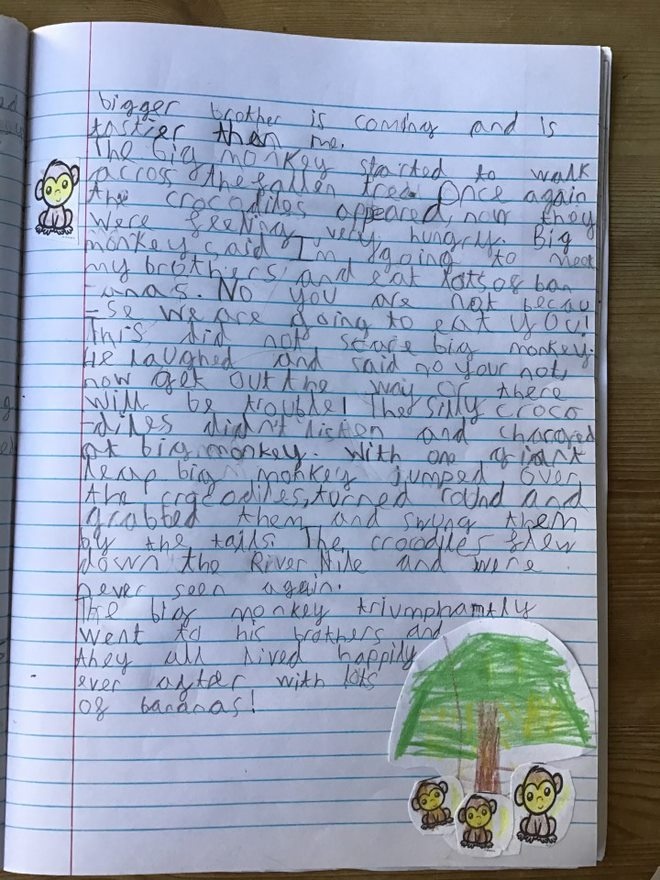 bigger brother is coming and is
tastier then me.
The big monkey started to walk
across the fallen tree. Once again
the crocodiles appeared, now they
were feeling very hungry. Big
monkey said I'm going to meet
my brothers and eat lots of ban
-unas. No you are not becau
-se we are going to eat you!
This did not scare big monkey.
He laughed and said no your not,
now get out the way or there
will be trouble! The silly croco
-diles didn't listen and charged
at big monkey. With one giant
leap big monkey jumped over
the crocodiles, turned round and
grabbed them and swung them
by the tails. The crocodiles flew
down the River Nile and were
never seen again.
The big monkey triumphamtly
went to his brothers and
they all lived happily
ever after with lots
of bananas!